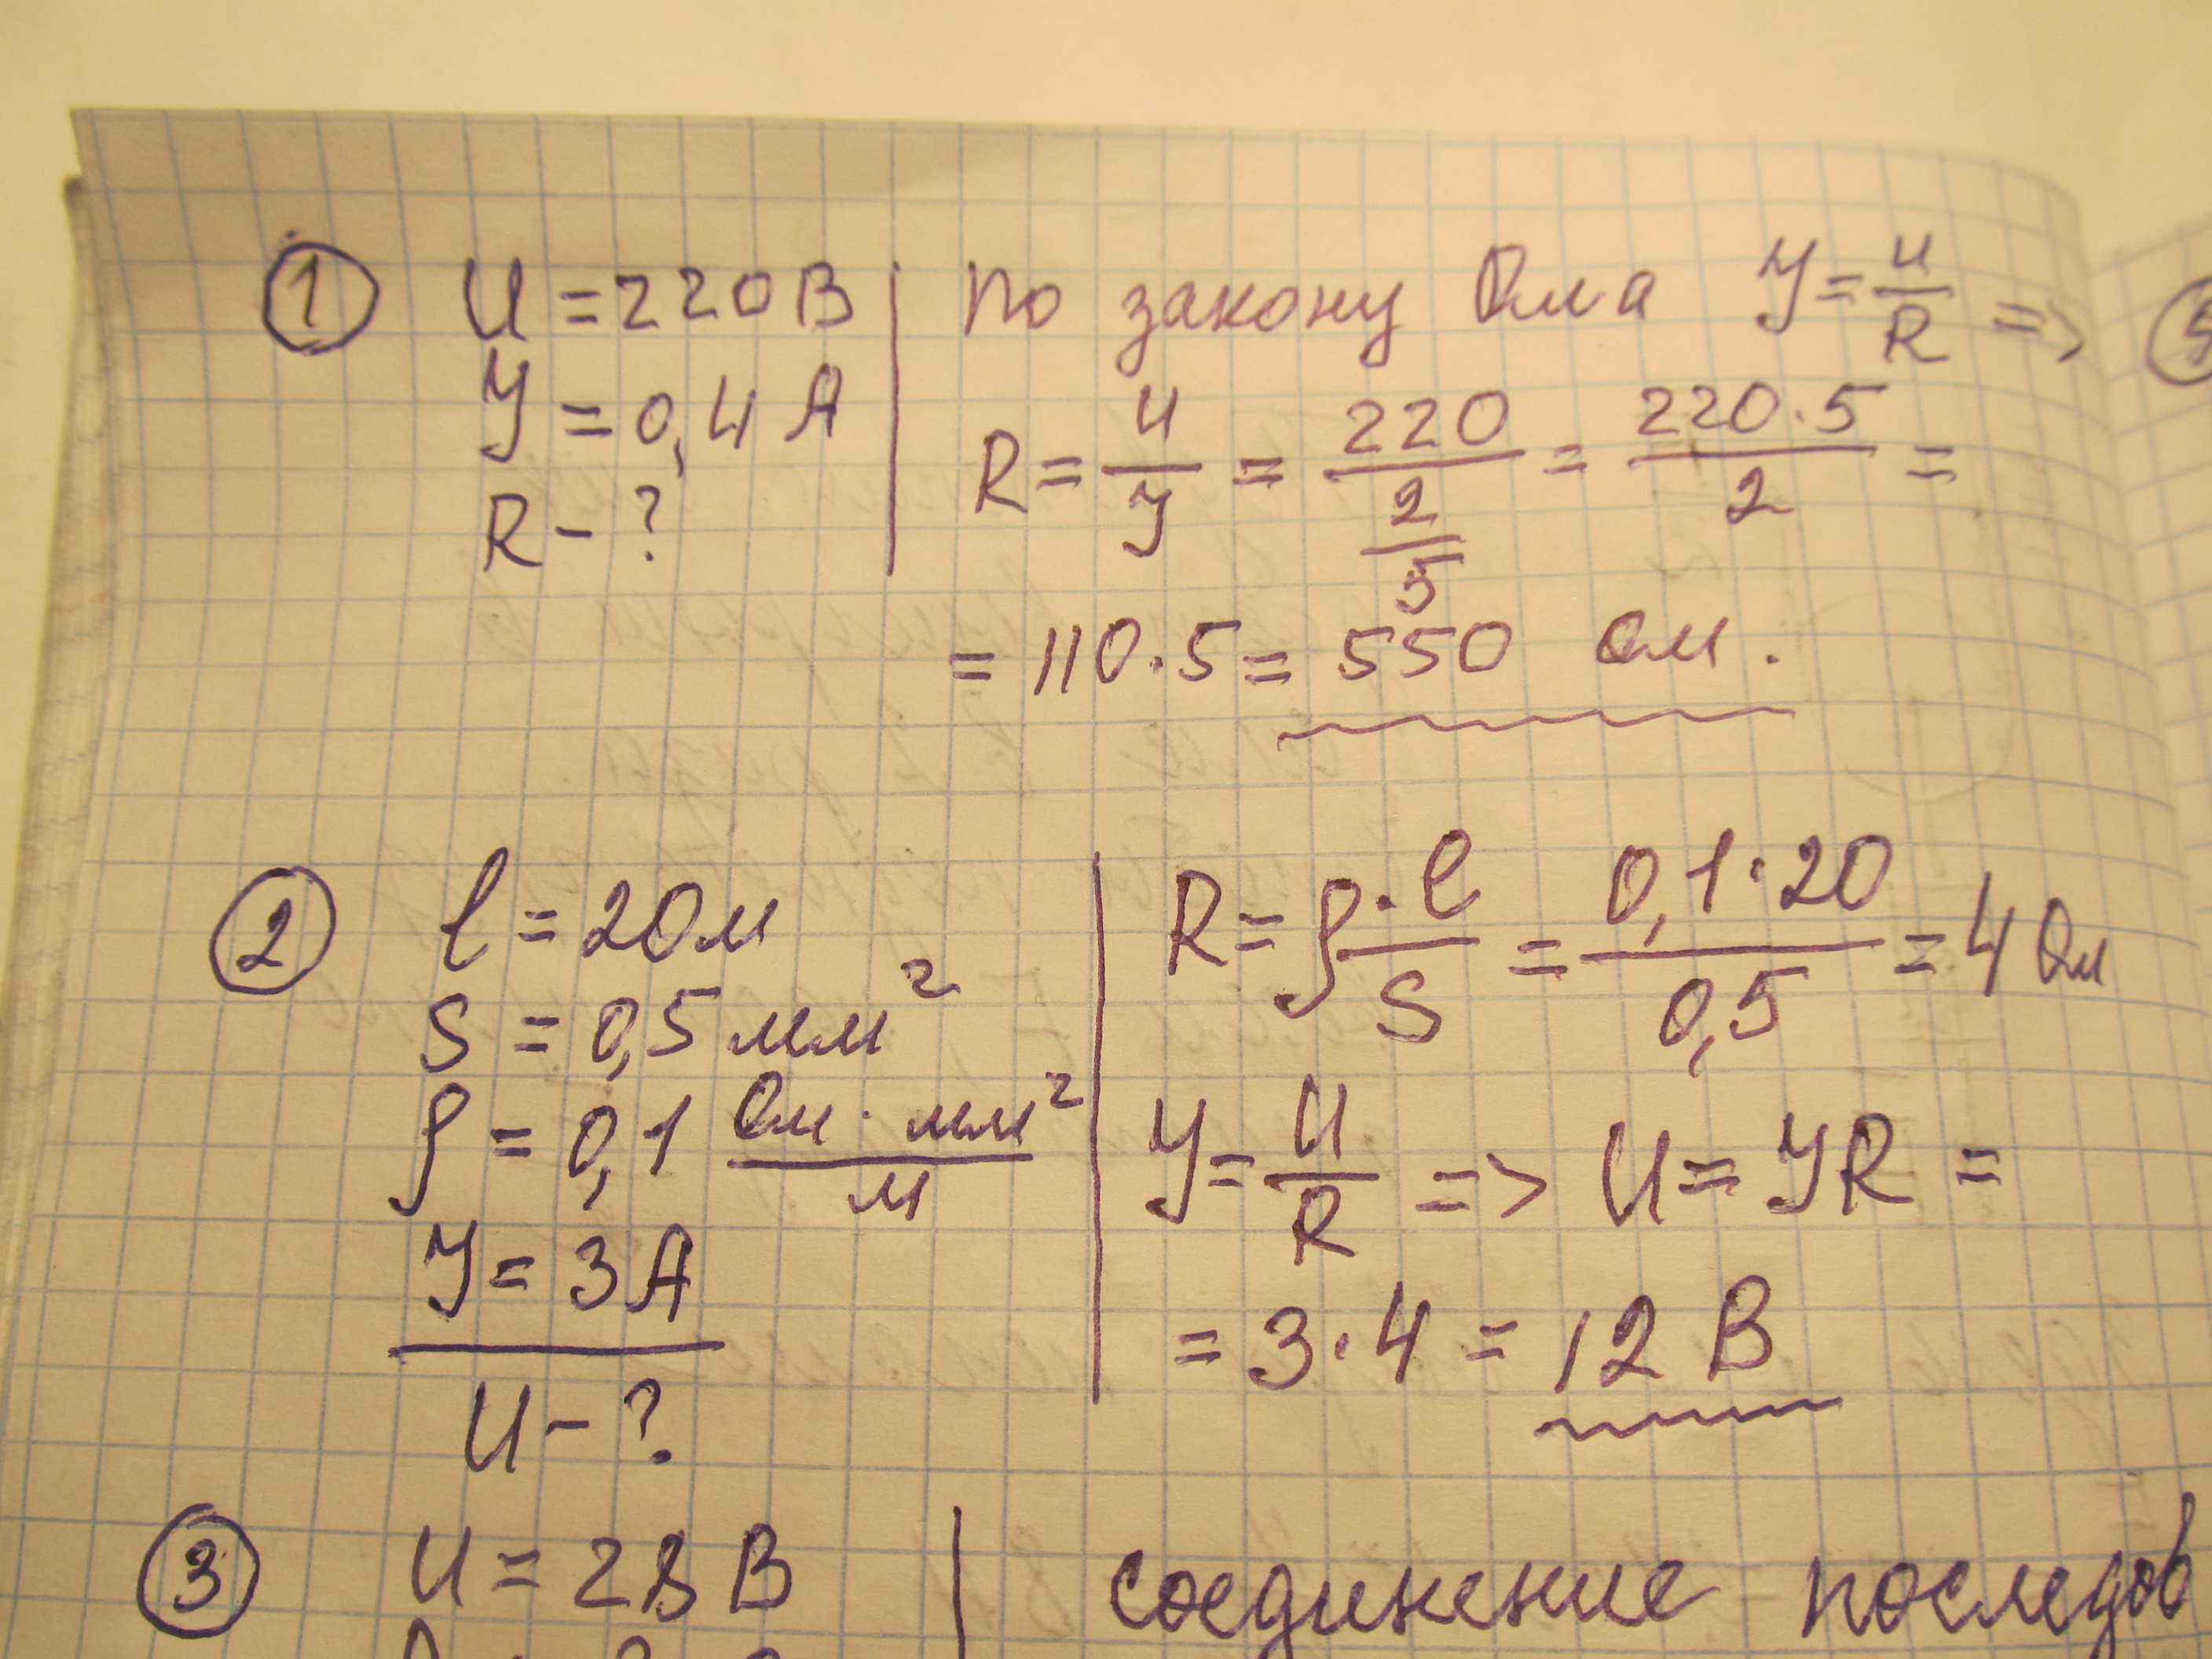 ① U = 220 В | По закону Ома У = U/R =>
У = 0,4 А
R - ?
R = U/У = 220/(2/5) = 220·5/2 =
= 110·5 = 550 Ом.
② l = 20м
S = 0,5 мм²
ρ = 0,1 Ом·мм²/м
У = 3А
U - ?
R = ρ·l/S = 0,1·20/0,5 = 4 Ом
У = U/R => U = УR =
= 3·4 = 12 В
③ U = 28 В | соединение последов